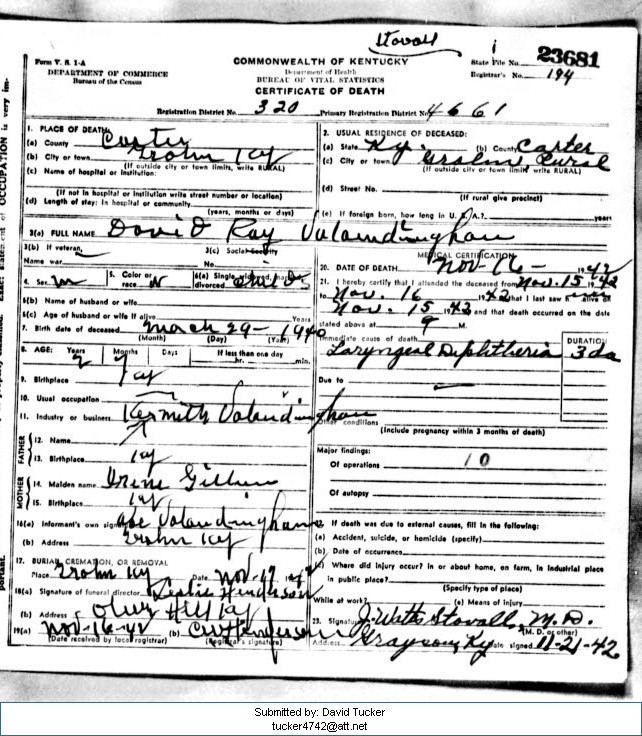 Stovall
Form V. S. 1-A
DEPARTMENT OF COMMERCE
Bureau of the Census
COMMONWEALTH OF KENTUCKY
Department of Health
BUREAU OF VITAL STATISTICS
CERTIFICATE OF DEATH
State File No. 23681
Registrar's No. 194
Registration District No. 320 Primary Registration District No. 4661
1. PLACE OF DEATH
(a) County Carter
(b) City or town Grahn Ky
(If outside city or town limits, write RURAL)
(c) Name of hospital or institution:
(If not in hospital or institution write street number or location)
(d) Length of stay: In hospital or community
(years, months or days)
2. USUAL RESIDENCE OF DECEASED:
(a) State Ky. (b) County Carter
(c) City or town Grahn Rural
(If outside city or town limits write RURAL)
(d) Street No.
(If rural give precinct)
(e) If foreign born, how long in U. S. A.? years
3(a) FULL NAME David Ray Valandingham
3(b) If veteran, 3(c) Social Security
Name war No.
4. Sex M 5. Color or race W 6(a) Single, widowed, married, divorced Child
6(b) Name of husband or wife
6(c) Age of husband or wife if alive Years
7. Birth date of deceased March 29 - 1940
(Month) (Day) (Year)
8. AGE: Years Months Days If less than one day
2 7 hr. min.
9. Birthplace Ky
10. Usual occupation
11. Industry or business
FATHER
12. Name Kermith Valandingham
13. Birthplace Ky
MOTHER
14. Maiden name Irene Gillum
15. Birthplace Ky
16(a) Informant's own sign Abe Valandingham
(b) Address Grahn Ky
17. BURIAL, CREMATION, OR REMOVAL
Place Grahn Ky Date Nov 17 1942
18(a) Signature of funeral director Leslie Henderson
(b) Address Olive Hill Ky
19(a) Nov-16-42 (b)
(Date received by local registrar) (Registrar's signature)
MEDICAL CERTIFICATION
20. DATE OF DEATH Nov-16- 1942
21. I hereby certify that I attended the deceased from Nov. 15 1942
to Nov. 16 1942 that I last saw h alive on
Nov. 15 1942 and that death occurred on the date
stated above at 9 M.
Immediate cause of death DURATION
Laryngeal Diphtheria 3 da
Due to
Other conditions
(Include pregnancy within 3 months of death)
Major findings:
Of operations 10
Of autopsy
22. If death was due to external causes, fill in the following:
(a) Accident, suicide, or homicide (specify)
(b) Date of occurrence
(c) Where did injury occur? in or about home, on farm, in industrial place
in public place?
(Specify type of place)
While at work? (e) Means of injury
23. Signature J. Watts Stovall, M. D.
(M. D. or other)
Address Grayson, Ky Date signed 11-21-42
Submitted by: David Tucker
tucker4742@att.net